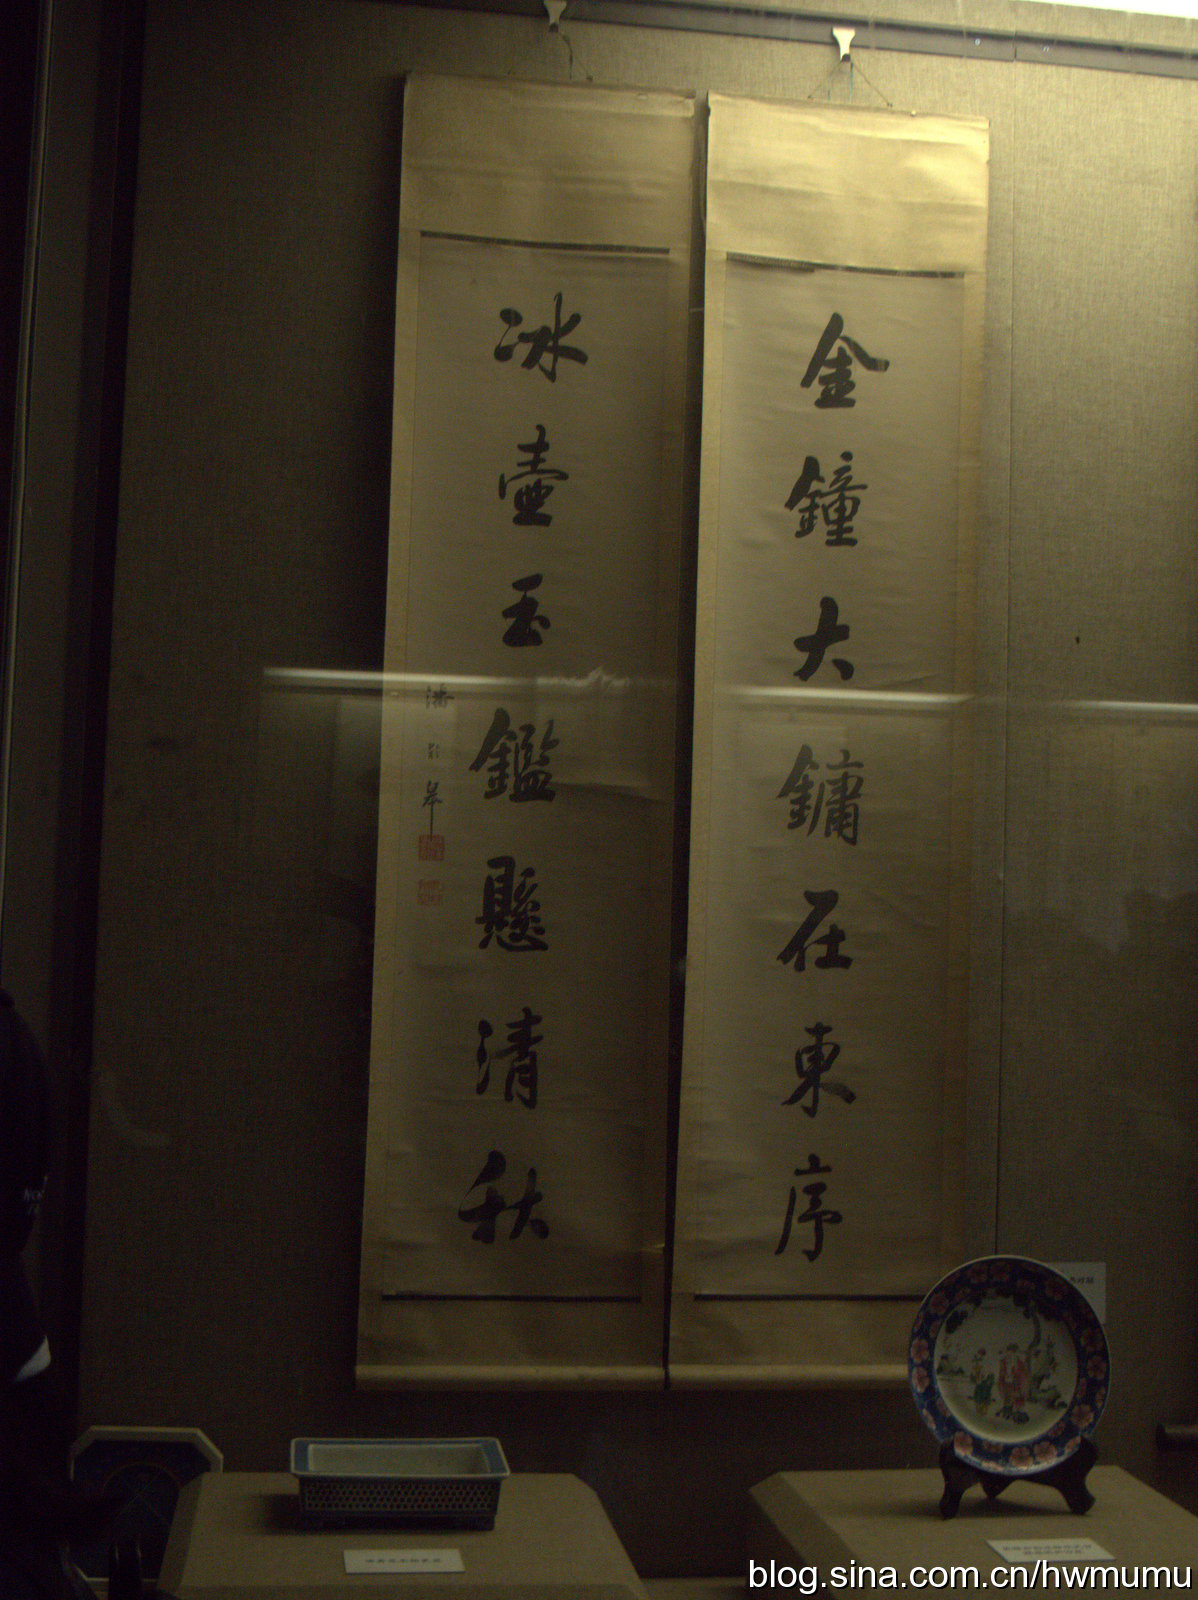 金鐘大鏞在東序
冰壺玉鑑懸清秋
潘齡皋
blog.sina.com.cn/hwmumu